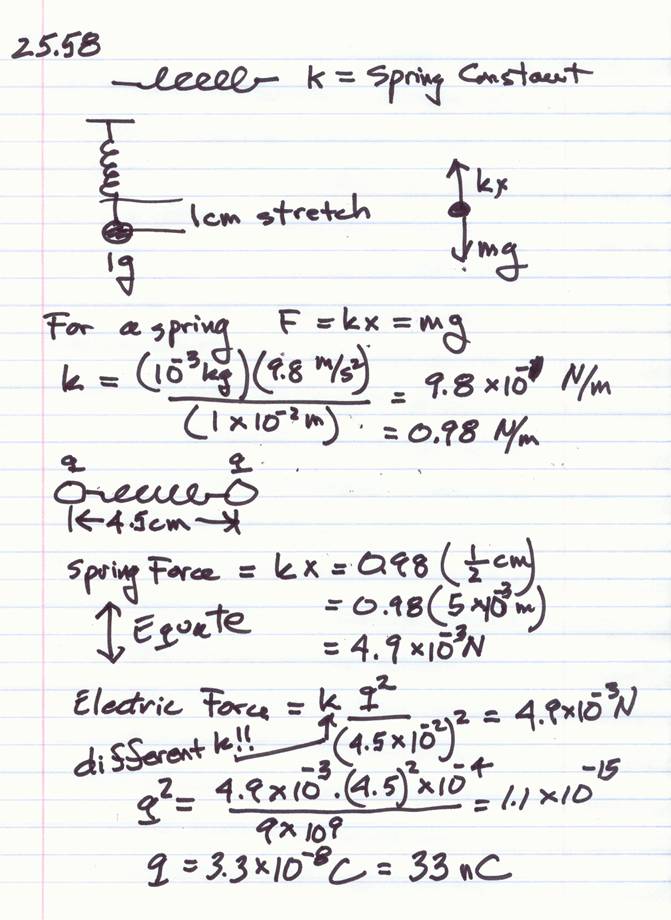 25.58
k = Spring Constant
1cm stretch
kx
1g
mg
For a spring F = kx = mg
k = (10⁻³ kg)(9.8 m/s²) / (1 × 10⁻² m) = 9.8 × 10⁻¹ N/m
= 0.98 N/m
q q
|← 4.5cm →|
Spring Force = kx = 0.98 (½ cm)
= 0.98 (5 × 10⁻³ m)
↕ Equate
= 4.9 × 10⁻³ N
Electric Force = k q² / (4.5 × 10⁻²)² = 4.9 × 10⁻³ N
different k!!
q² = 4.9 × 10⁻³ · (4.5)² × 10⁻⁴ / 9 × 10⁹ = 1.1 × 10⁻¹⁵
q = 3.3 × 10⁻⁸ C = 33 nC